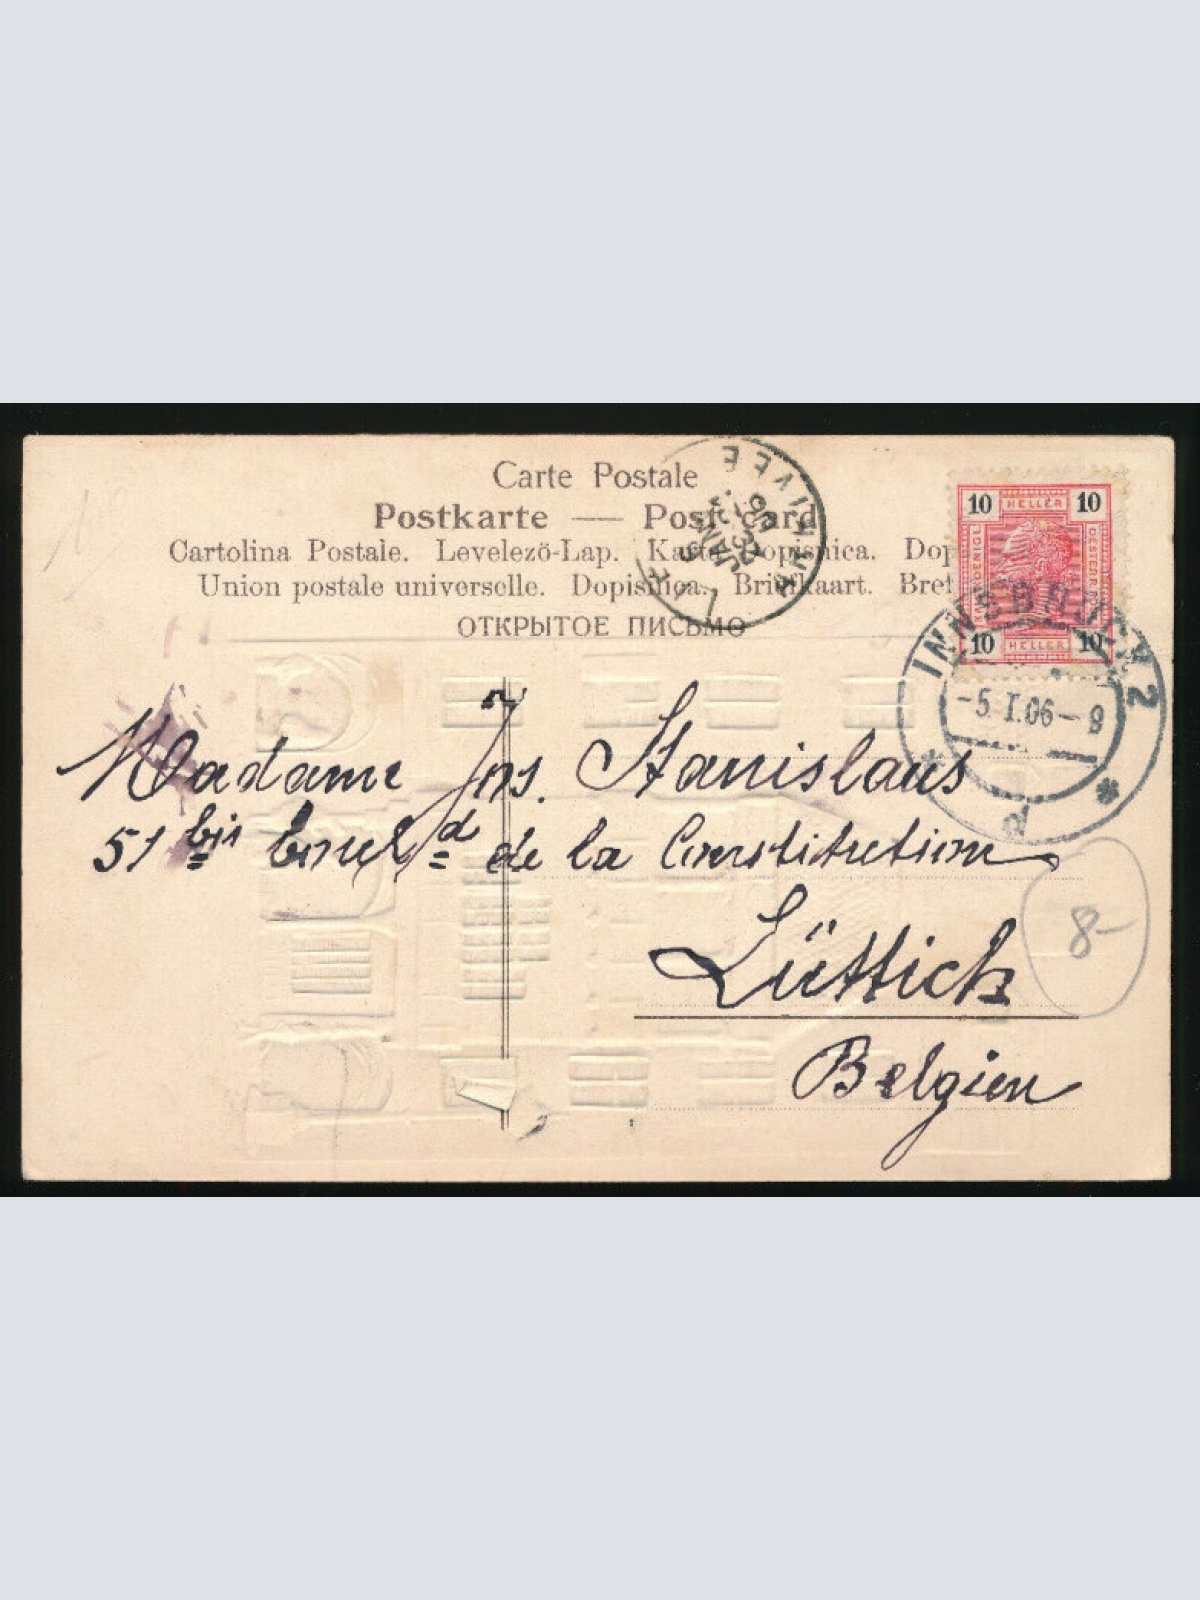 Carte Postale
Postkarte — Post card
Cartolina Postale. Levelező-Lap. Karta dopisnica. Dop
Union postale universelle. Dopisnica. Briefkaart. Bret
ОТКРЫТОЕ ПИСЬМО
ARRIVEE
JANV
06
10 HELLER 10
10 HELLER 10
INNSBRUCK 2
-5.I.06-8
* d *
Madame Jos. Stanislaus
51 bis boul d de la Constitution
Lüttich
8-
Belgien